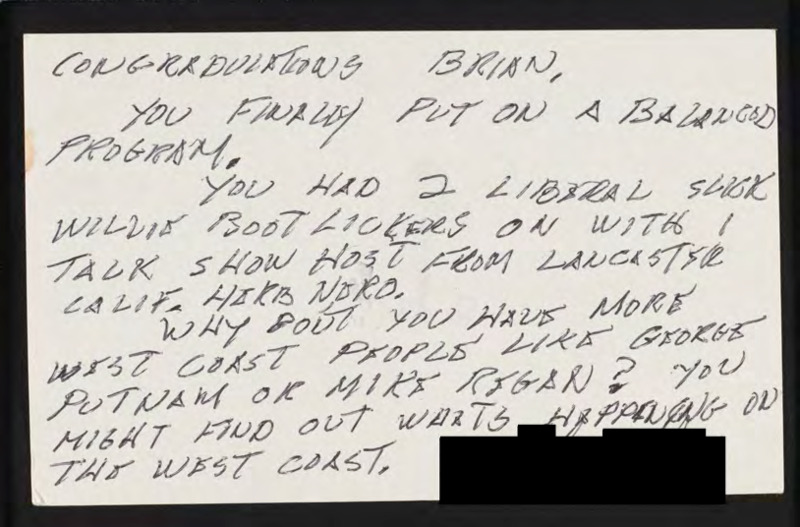 CONGRADULATIONS BRIAN,
YOU FINALLY PUT ON A BALANCED
PROGRAM.
YOU HAD 2 LIBERAL SLICK
WILLIE BOOTLICKERS ON WITH 1
TALK SHOW HOST FROM LANCASTER
CALIF. HERB NERO.
WHY DONT YOU HAVE MORE
WEST COAST PEOPLE LIKE GEORGE
PUTNAM OR MIKE REGAN? YOU
MIGHT FIND OUT WHATS HAPPENING ON
THE WEST COAST.